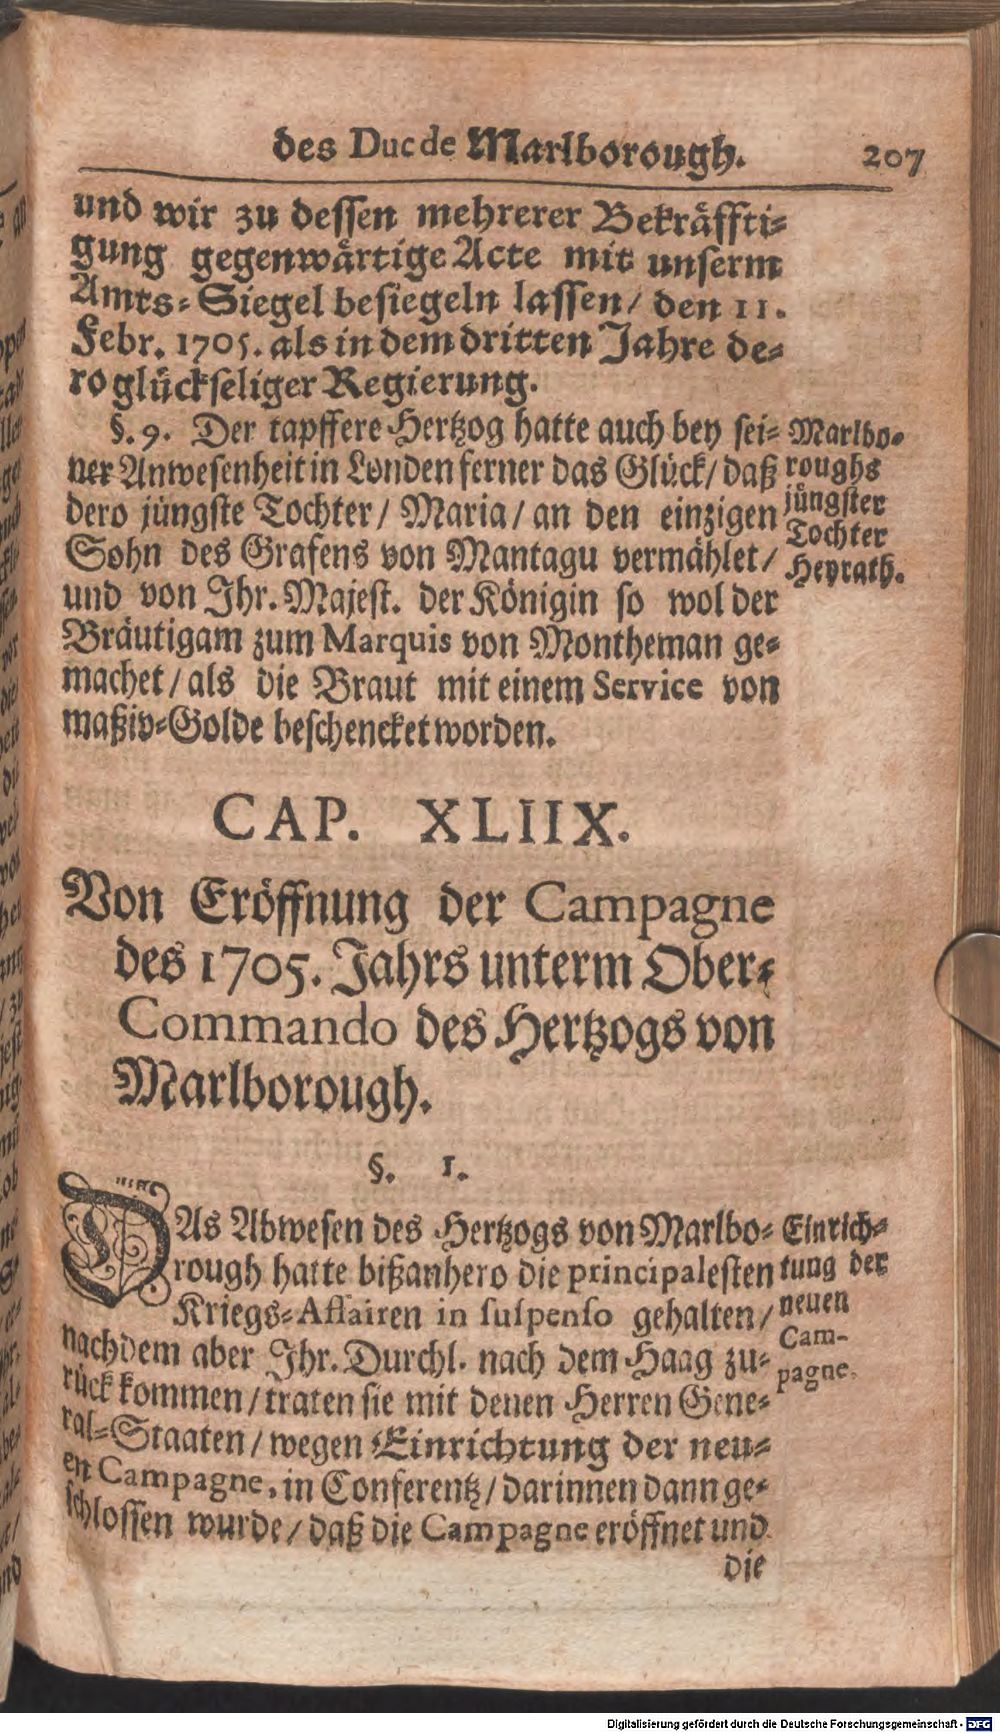 des Duc de Marlborough. 207
und wir zu dessen mehrerer Bekräffti-
gung gegenwärtige Acte mit unserm
Amts-Siegel besiegeln lassen/ den 11.
Febr. 1705. als in dem dritten Jahre de-
ro glückseliger Regierung.
§. 9. Der tapffere Hertzog hatte auch bey sei-
ner Anwesenheit in Londen ferner das Glück/ daß
dero jüngste Tochter/ Maria/ an den einzigen
Sohn des Grafens von Mantagu vermählet/
und von Ihr. Majest. der Königin so wol der
Bräutigam zum Marquis von Montheman ge-
machet/ als die Braut mit einem Service von
maßiv-Golde beschencket worden.
Marlbo-
roughs
jüngster
Tochter
Heyrath.
CAP. XLIIX.
Von Eröffnung der Campagne
des 1705. Jahrs unterm Ober-
Commando des Hertzogs von
Marlborough.
§. 1.
DAs Abwesen des Hertzogs von Marlbo-
rough hatte bißanhero die principalesten
Kriegs-Affairen in suspenso gehalten/
nachdem aber Ihr. Durchl. nach dem Haag zu-
rück kommen/ traten sie mit denen Herren Gene-
ral-Staaten/ wegen Einrichtung der neu-
en Campagne, in Conferentz/ darinnen dann ge-
schlossen wurde/ daß die Campagne eröffnet und
Einrich-
tung der
neuen
Cam-
pagne.
die
Digitalisierung gefördert durch die Deutsche Forschungsgemeinschaft - DFG